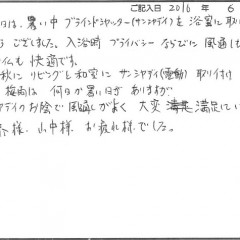 ご記入日 2016 年 6
日は、暑い中 ブラインドシャッター(サンシャディ)を 浴室に取り
うございました。入浴時 プライバシー ならびに 風通し
イムも 快適です。
秋に リビングと和室に サンシャディ(電動) 取り付け
梅雨は 何日か暑い日が ありますが
ャディのお陰で 風通しがよく 大変 満足してい
様、山中様 お疲れ様でした。